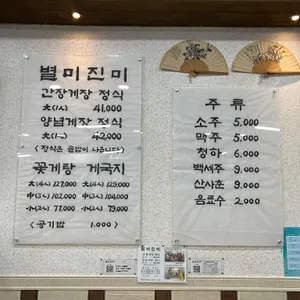 별미진미
간장게장 정식
大(1人) 41,000
양념게장 정식
大(1人) 42,000
(정식은 돌밥이 나옵니다)
꽃게탕 게국지
大(4人) 127,000 大(4人) 129,000
中(3人) 102,000 中(3人) 104,000
小(2人) 77,000 小(2人) 79,000
(공기밥 1,000)
주 류
소주 5,000
맥주 5,000
청하 6,000
백세주 9,000
산사춘 9,000
음료수 2,000
별미진미